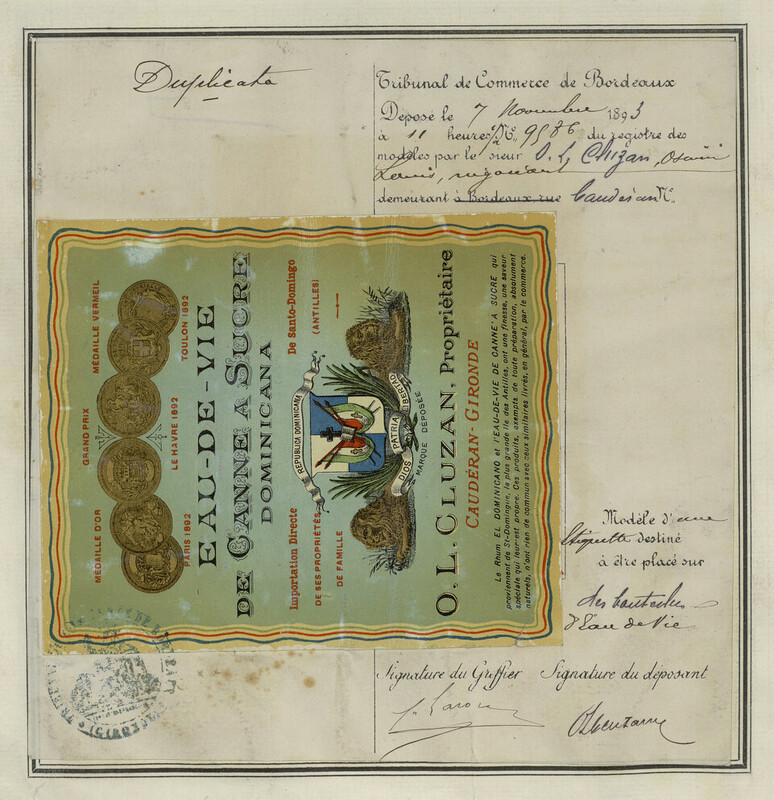 Duplicata
Tribunal de Commerce de Bordeaux
Déposé le 7 Novembre 1893
à 11 heures Nº 9586 du registre des
modèles par le sieur O. L. Cluzan, Osmin
Louis, négociant
demeurant à Bordeaux, rue Caudéran Nº
MÉDAILLE D'OR
GRAND PRIX
MÉDAILLE VERMEIL
PARIS 1892
LE HAVRE 1892
TOULON 1892
EAU-DE-VIE
DE CANNE A SUCRE
DOMINICANA
Importation Directe
DE SES PROPRIÉTÉS
DE FAMILLE
De Santo-Domingo
(ANTILLES)
REPUBLICA DOMINICANA
DIOS PATRIA LIBERTAD
MARQUE DÉPOSÉE
O. L. CLUZAN, Propriétaire
CAUDÉRAN-GIRONDE
Le Rhum EL DOMINICANO et l'EAU-DE-VIE DE CANNE A SUCRE qui
proviennent de St-Domingue, la plus grande île des Antilles, ont une finesse, une saveur
spéciale qui leur est propre. Ces produits, exempts de toute préparation, absolument
naturels, n'ont rien de commun avec ceux similaires livrés, en général, par le commerce.
Modèle d'une
étiquette destiné
à être placé sur
des bouteilles
d'Eau de Vie
Signature du Greffier Signature du déposant